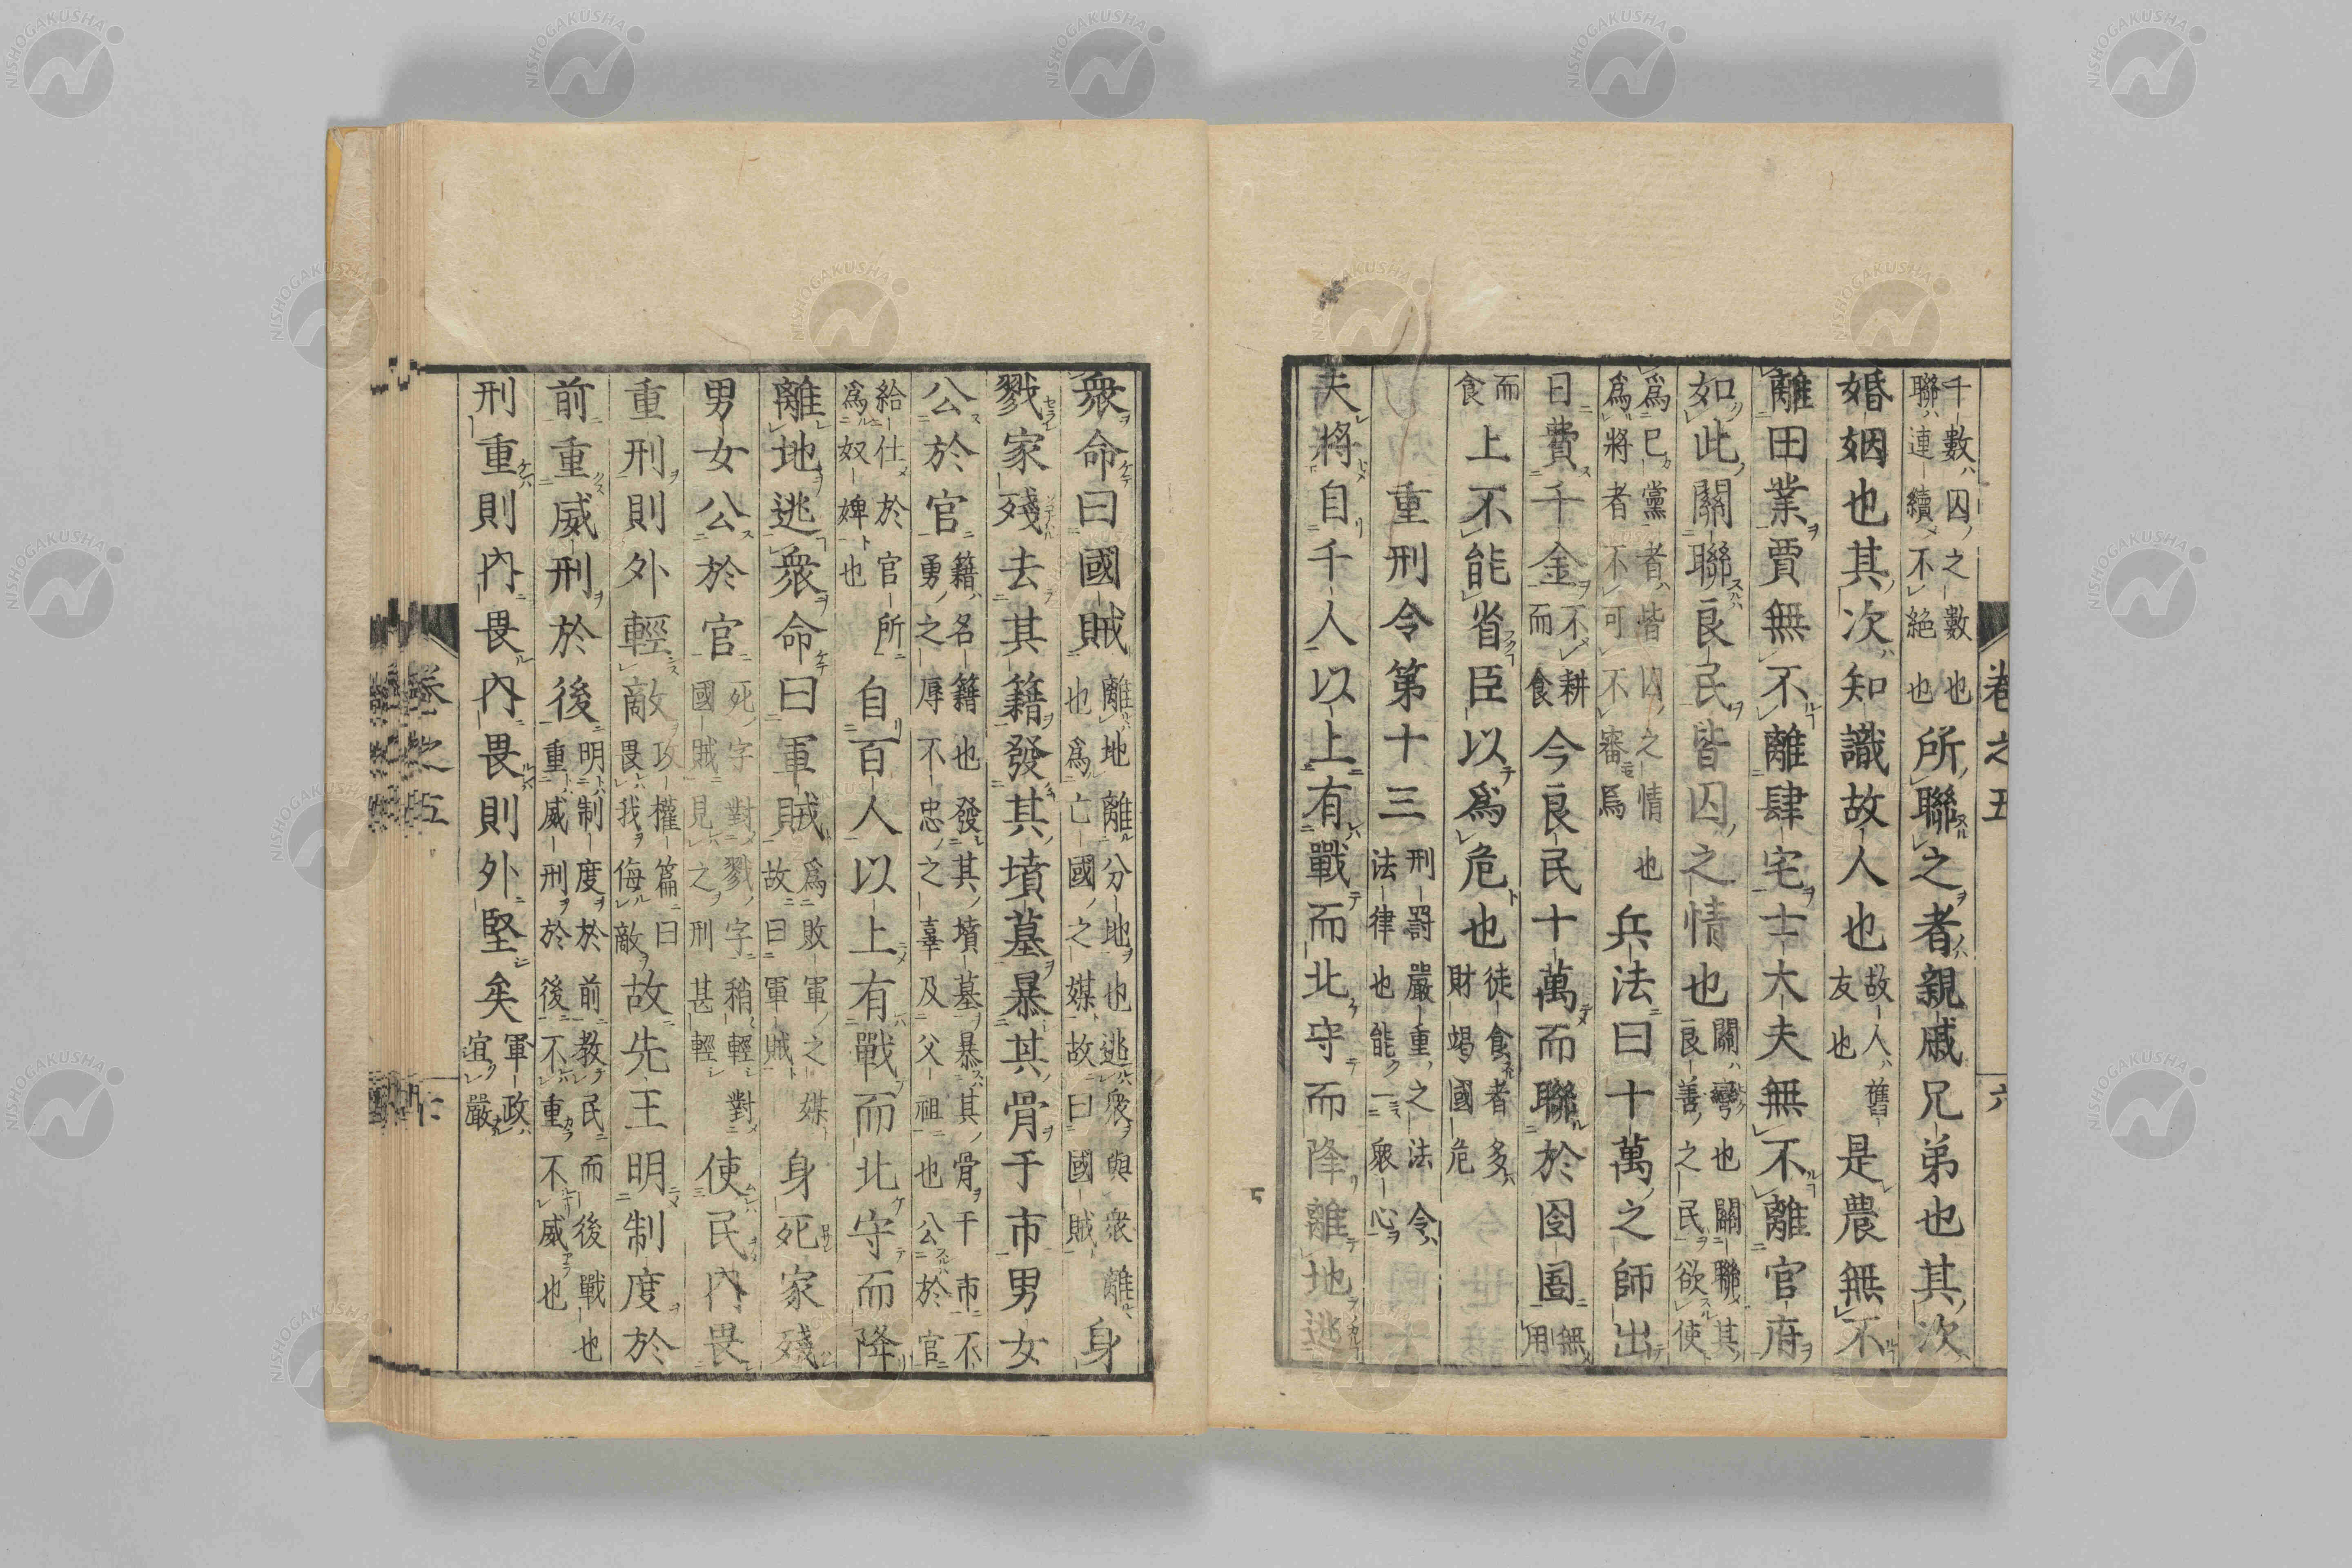 卷之五 六
千數囚之數也聯連續不絕也所聯之者親戚兄弟也其次
婚姻也其次知識故人也故人舊友也是農無不
離田業賈無不離肆宅士大夫無不離官府
如此關聯良民皆囚之情也關彎也關聯其良善之民欲使
爲已黨者皆囚之情也爲將者不可不審焉兵法曰十萬之師出
日費千金不耕而食今良民十萬而聯於囹圄無用
而食上不能省臣以爲危也徒食者多財竭國危
重刑令第十三刑罰嚴重之法令法律也能一衆心
夫將自千人以上有戰而北守而降離地逃
衆命曰國賊離地離分地也逃衆與衆離也爲亡國之媒故曰國賊身
戮家殘去其籍發其墳墓暴其骨于市男女
公於官籍名籍也發其墳墓暴其骨干市不勇之辱不忠之辜及父祖也公於官
給仕於官所爲奴婢也自百人以上有戰而北守而降
離地逃衆命曰軍賊爲敗軍之媒故曰軍賊身死家殘
男女公於官死字對戮字稍輕對國賊見之刑甚輕使民內畏
重刑則外輕敵攻權篇曰畏我侮敵故先王明制度於
前重威刑於後明制度於前教民而後戰也重威刑於後不重不威也
刑重則內畏內畏則外堅矣軍政宜嚴
卷之五